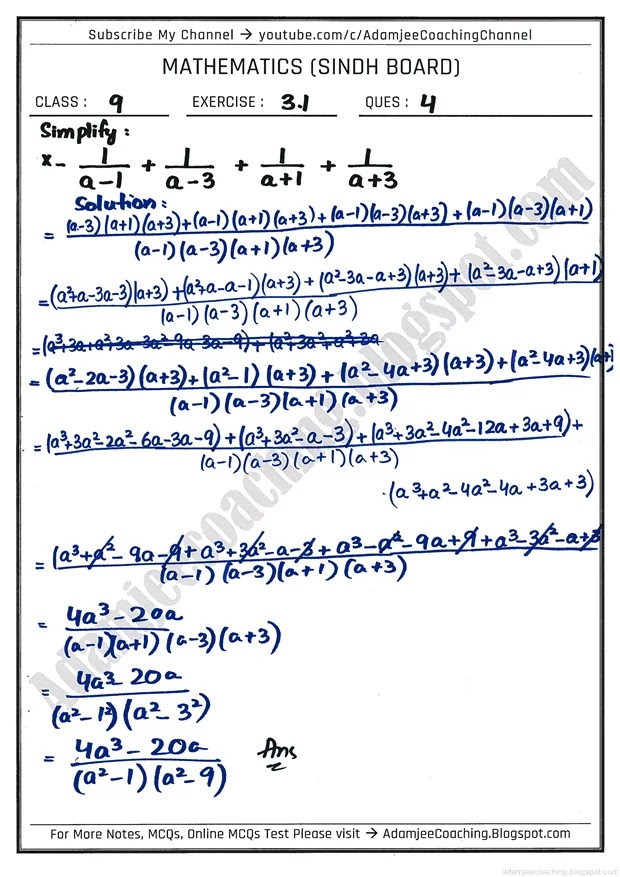 Subscribe My Channel → youtube.com/c/AdamjeeCoachingChannel
MATHEMATICS (SINDH BOARD)
CLASS : 9 EXERCISE : 3.1 QUES : 4
Simplify :
x- 1/(a-1) + 1/(a-3) + 1/(a+1) + 1/(a+3)
Solution:
= (a-3)(a+1)(a+3)+(a-1)(a+1)(a+3)+(a-1)(a-3)(a+3)+(a-1)(a-3)(a+1)
(a-1)(a-3)(a+1)(a+3)
=(a²+a-3a-3)(a+3)+(a²+a-a-1)(a+3)+(a²-3a-a+3)(a+3)+(a²-3a-a+3)(a+1)
(a-1)(a-3)(a+1)(a+3)
=(a³+3a+a²+3a-3a²-9a-3a-9)+(a²+3a²+a²+3a
= (a²-2a-3)(a+3)+(a²-1)(a+3)+(a²-4a+3)(a+3)+(a²-4a+3)(a+1
(a-1)(a-3)(a+1)(a+3)
=(a³+3a²-2a²-6a-3a-9)+(a³+3a²-a-3)+(a³+3a²-4a²-12a+3a+9)+
(a-1)(a-3)(a+1)(a+3)
.(a³+a²-4a²-4a+3a+3)
= (a³+a²-9a-9+a³+3a²-a-3+a³-a²-9a+9+a³-3a²-a+3
(a-1)(a-3)(a+1)(a+3)
= 4a³-20a
(a-1)(a+1)(a-3)(a+3)
= 4a³-20a
(a²-1²)(a²-3²)
= 4a³-20a Ans
(a²-1)(a²-9)
Adamjeecoaching.blogspot.com
For More Notes, MCQs, Online MCQs Test Please visit → AdamjeeCoaching.Blogspot.com
adamjeecoaching.blogspot.com